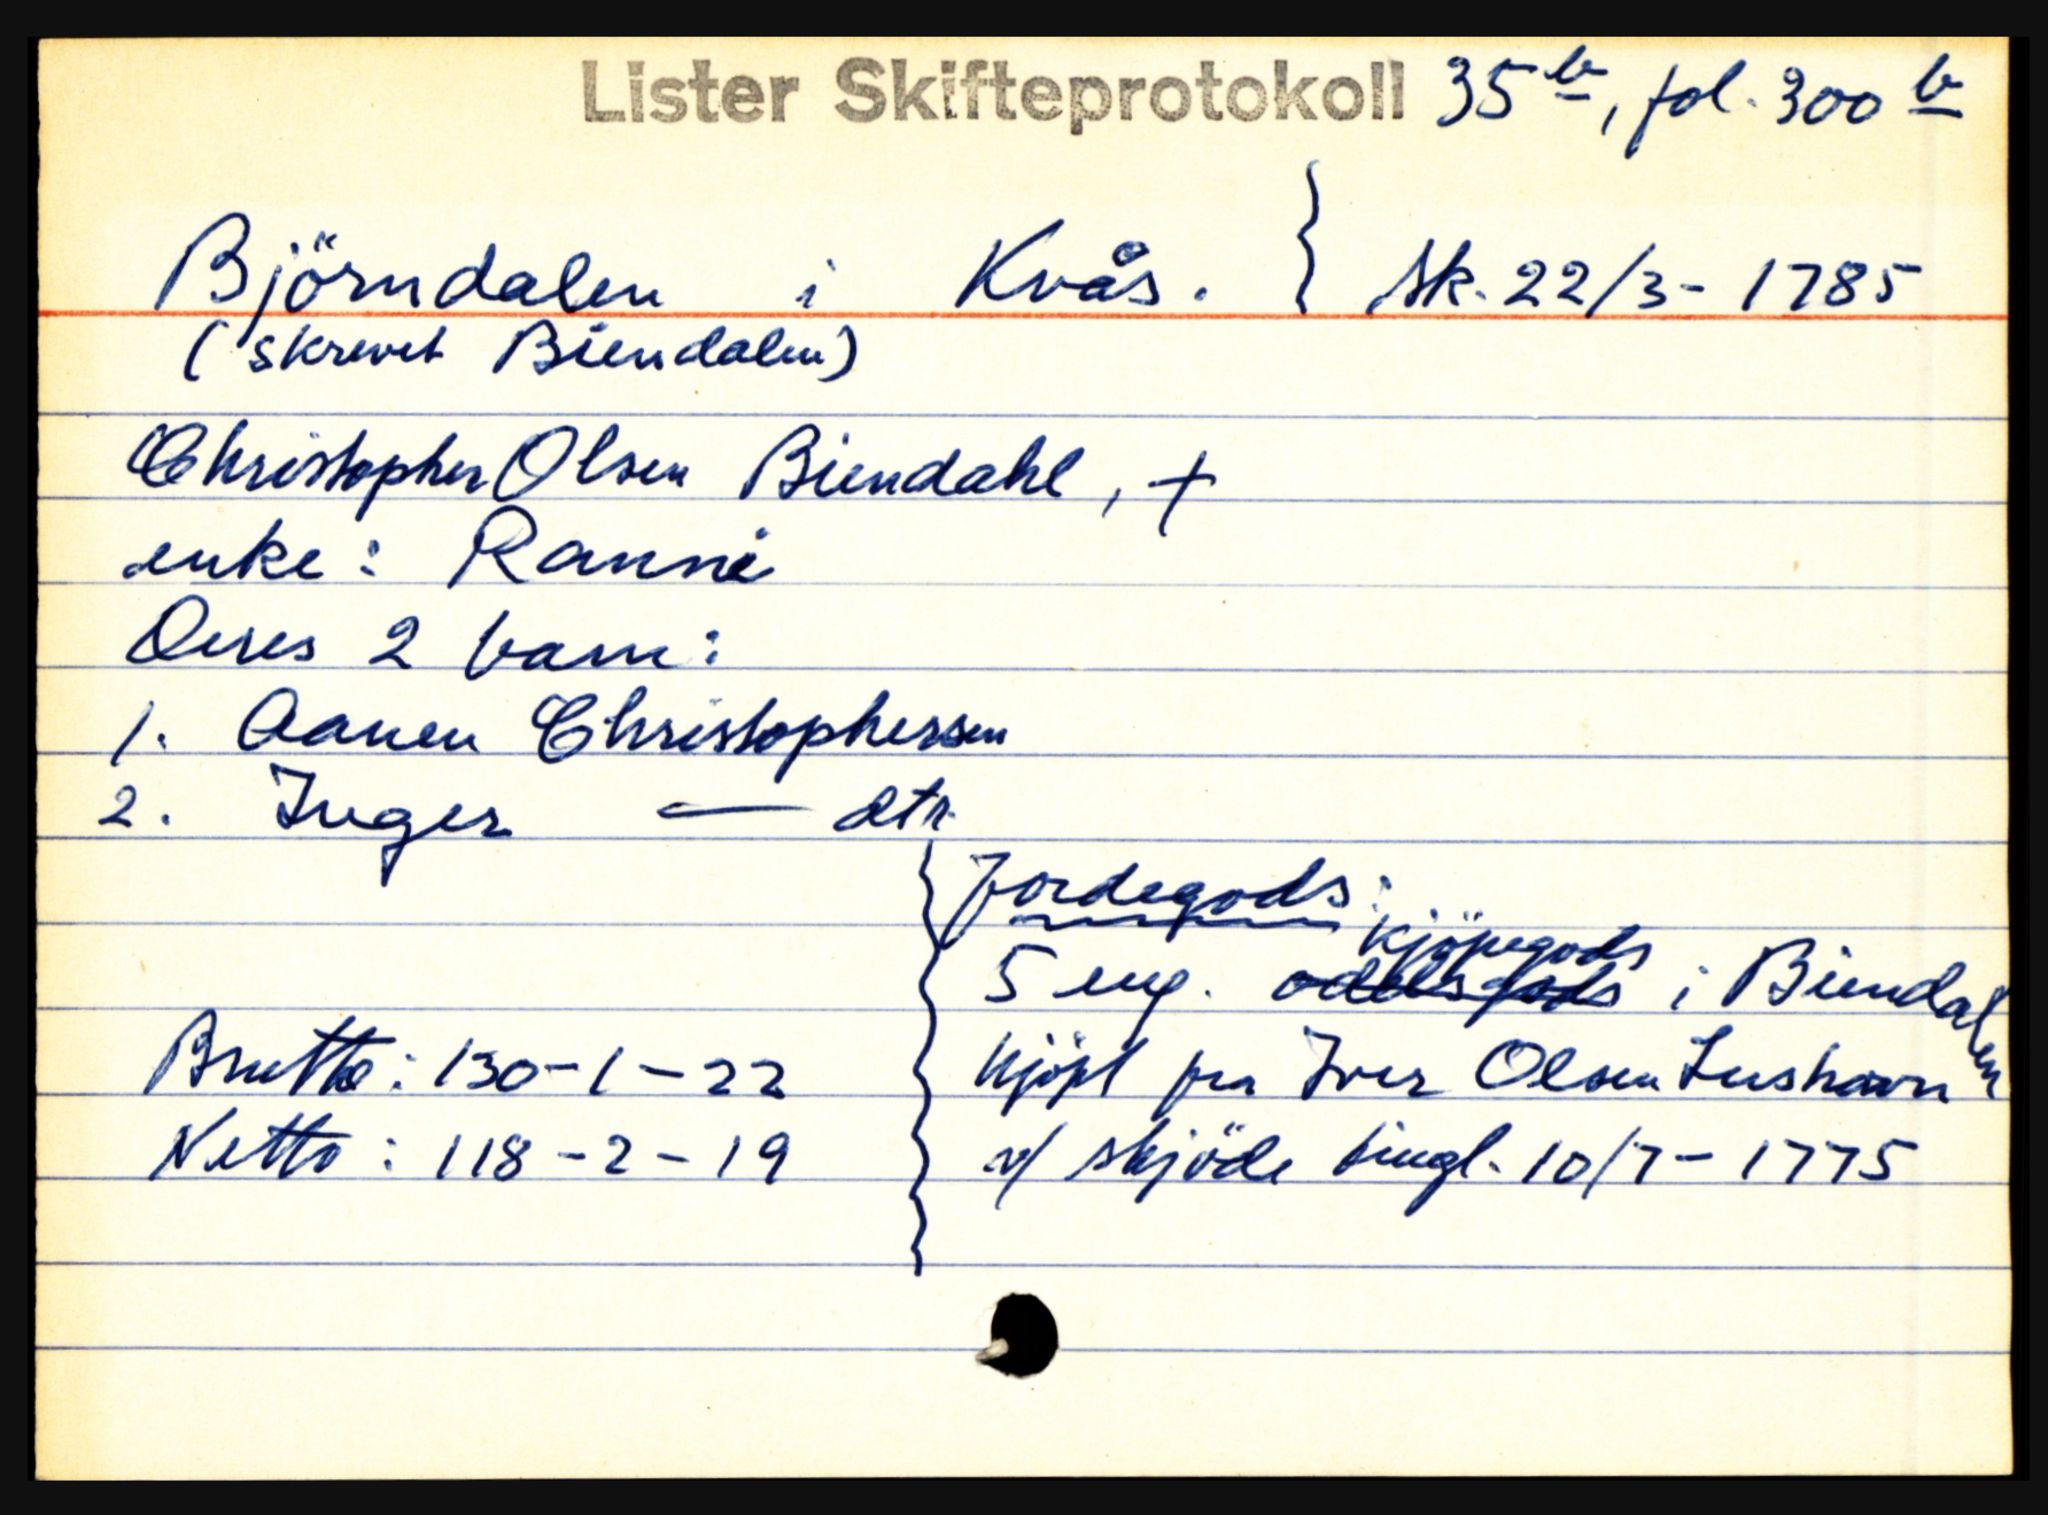 Lister Skifteprotokoll 35b, fol. 300b
Björndalen i Kvås. } Sk. 22/3 - 1785
(skrevet Biendalen)
Christopher Olsen Biendahl, +
enke: Ranni
Deres 2 barn:
1. Aanen Christophersen
2. Inger — dtr.
Jordegods:
kjöpegods
5 eng. oddelsgods i Biendalen
Brutto: 130-1-22
kjöpt fra Iver Olsen Lushavn
Netto: 118-2-19
v/ skjöde tingl. 10/7 - 1775